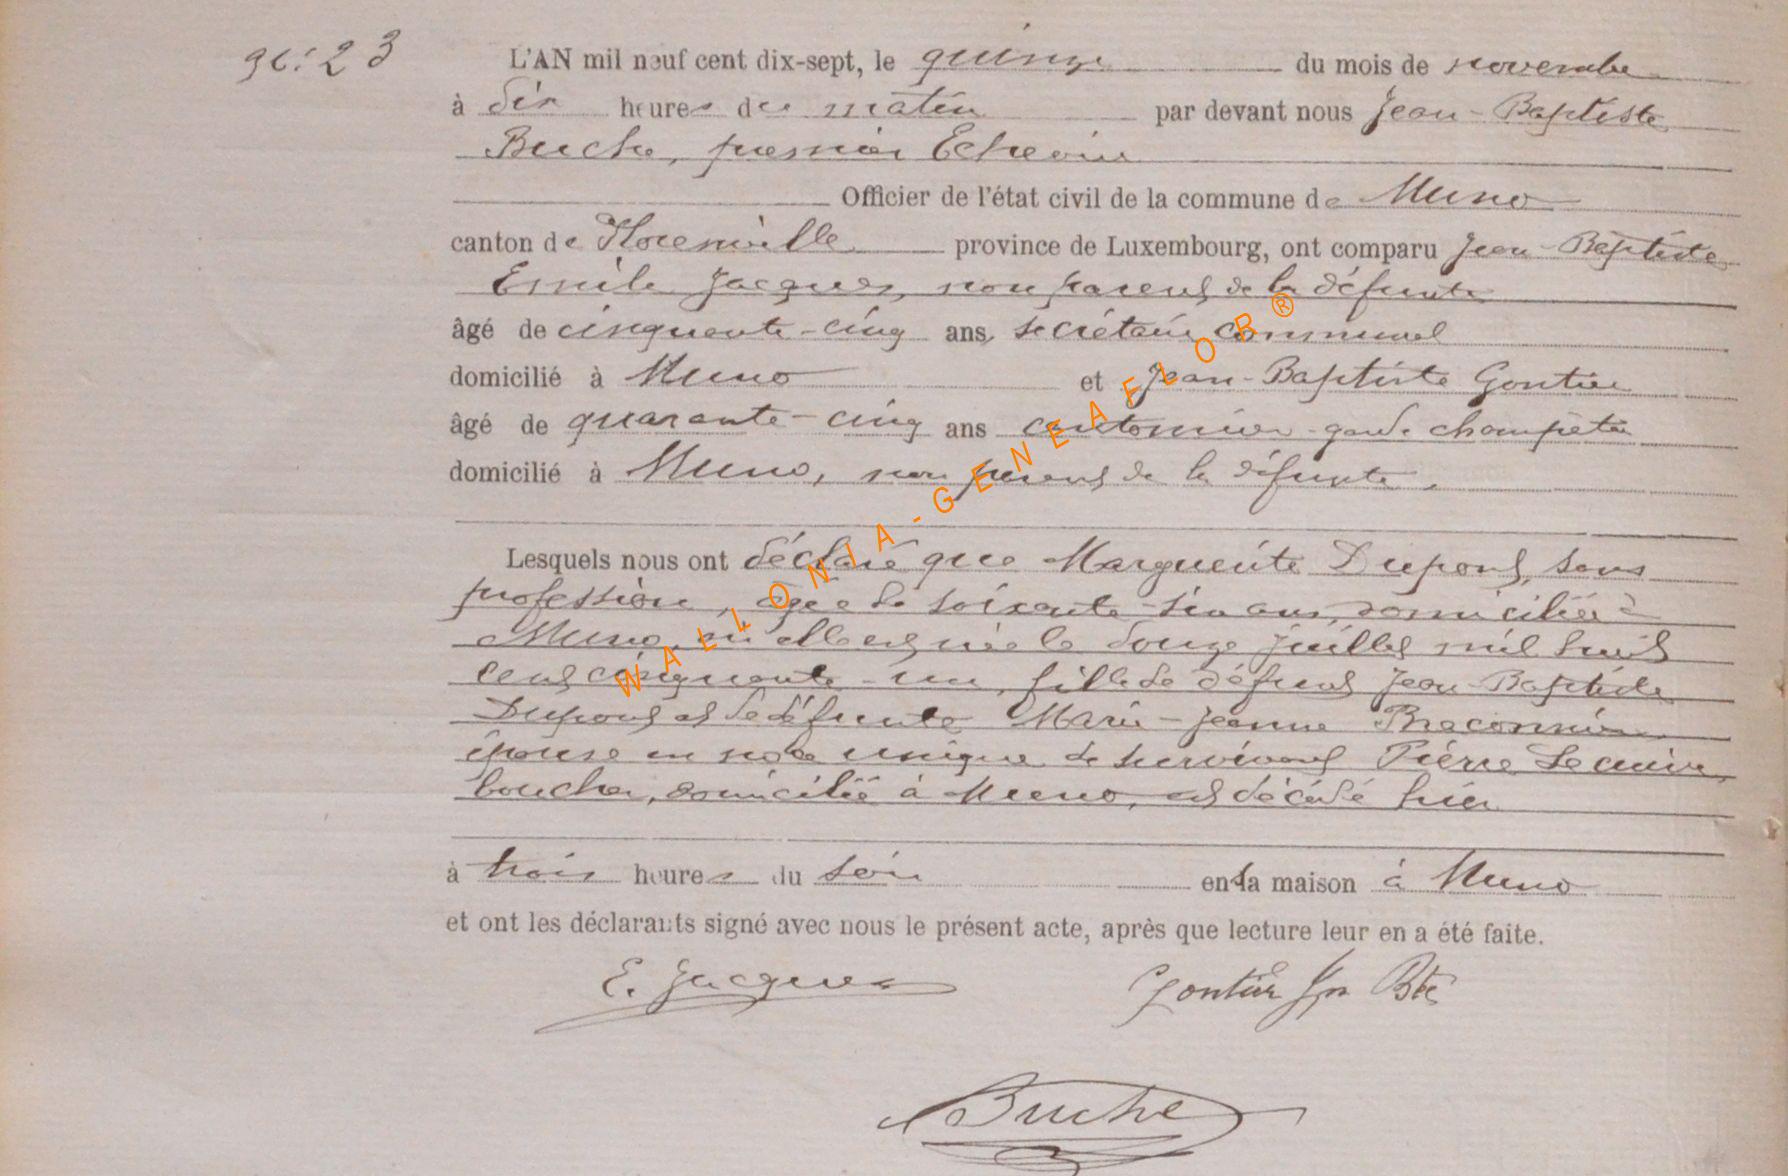 N°: 23
L'AN mil neuf cent dix-sept, le quinze du mois de novembre
à dix heures du matin par devant nous Jean-Baptiste
Buche, premier Echevin
Officier de l'état civil de la commune de Muno
canton de Florenville province de Luxembourg, ont comparu Jean-Baptiste
Emile Jacques, non parent de la défunte
âgé de cinquante-cinq ans, secrétaire communal
domicilié à Muno et Jean-Baptiste Gontier
âgé de quarante-cinq ans cantonnier-garde champêtre
domicilié à Muno, non parent de la défunte.
Lesquels nous ont déclaré que Marguerite Dupont, sans
profession, âgée de soixante-six ans, domiciliée à
Muno, où elle est née le douze juillet mil huit
cent cinquante-un, fille de défunt Jean-Baptiste
Dupont et de défunte Marie-Jeanne Braconnier
épouse en noce unique de survivant Pierre Lecuivre,
boucher, domicilié à Muno, est décédé hier
à trois heures du soir en la maison à Muno
et ont les déclarants signé avec nous le présent acte, après que lecture leur en a été faite.
E. Jacques Gontier Jn Bte
Buche
WALLONIA-GENEAFLOR®